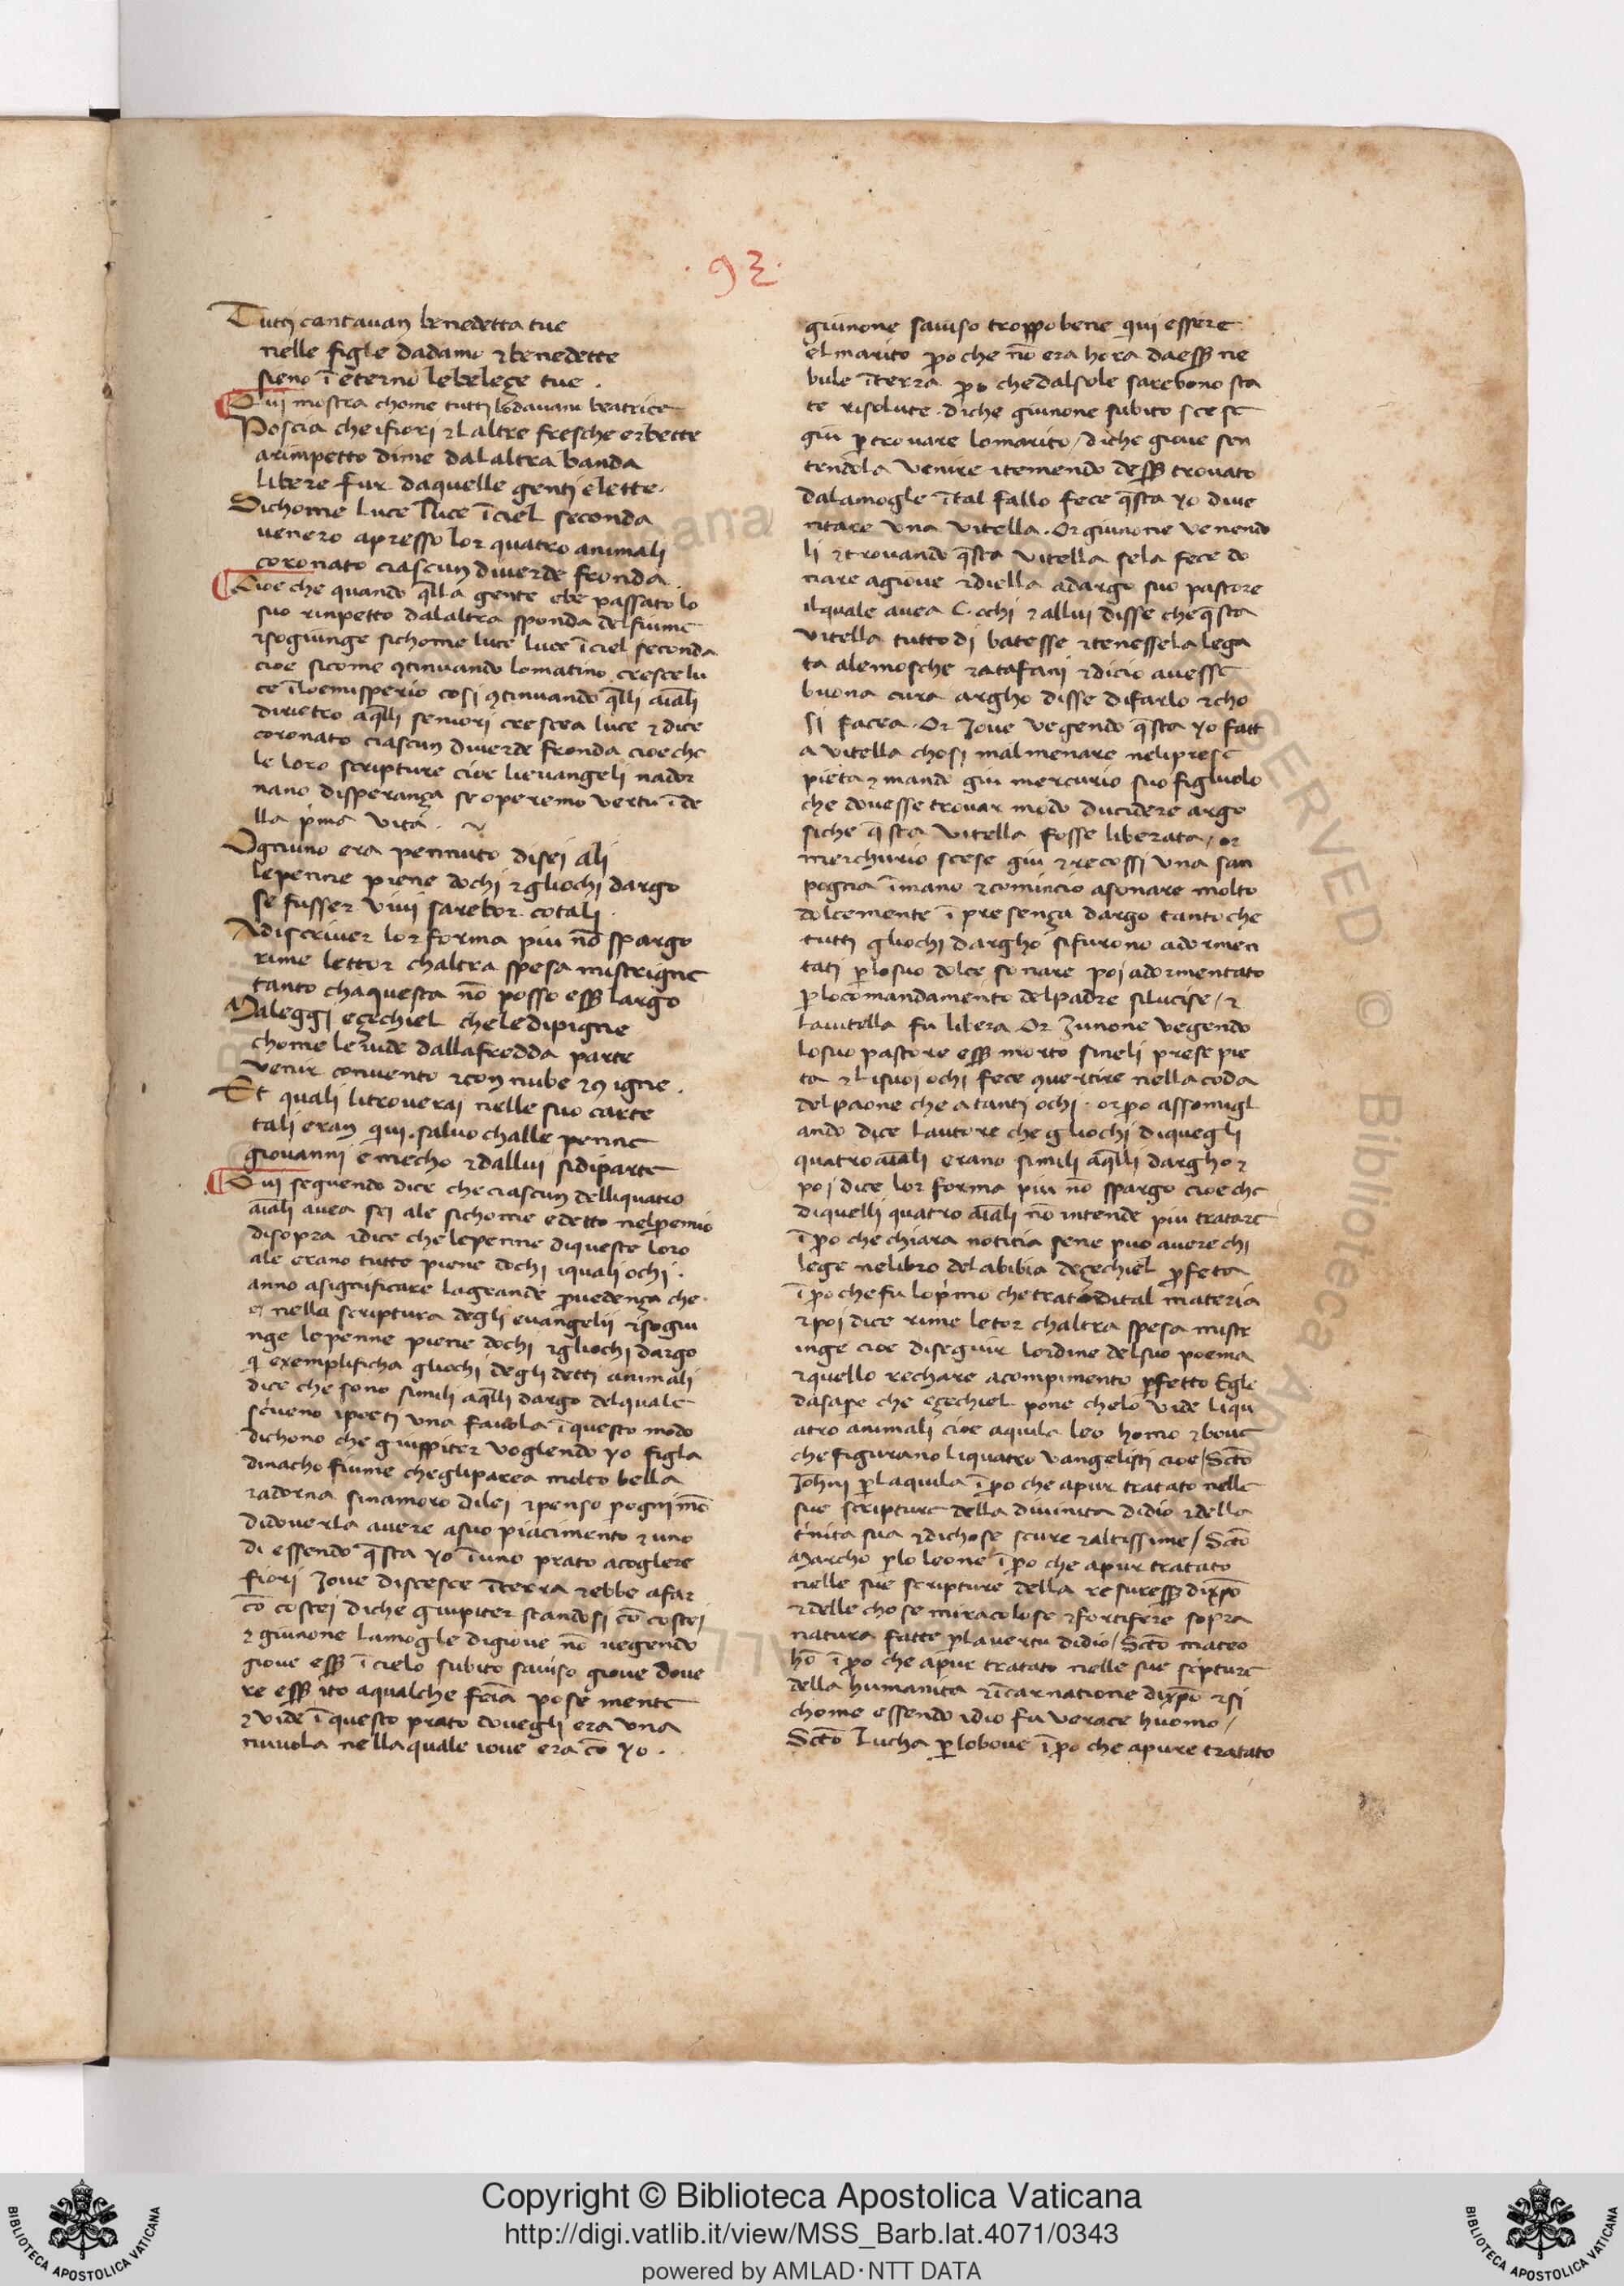 .93.
Tutti cantauan benedetta tue
nelle figle dadamo et benedette
sieno ī eterno lebeleçe tue .
Qui mostra chome tutti lodauano beatrice
Poscia che ifiori et laltre fresche erbette
arimpetto dime dalaltra banda
libere fur daquelle genti elette .
Sichome luce luce īciel seconda
uenero apresso lor quatro animali
coronato ciascun diuerde fronda .
Cioe che quando q̄lla gente ebe passato lo
suo rinpetto dalaltra sponda del fiume
et sogiunge sichome luce luce īciel seconda
cioe sicome ꝯtinuando lomatino cresce lu
ce īloemisperio cosi ꝯtinuando q̄lli aīali
dirietro aq̄lli seniori crescea luce et dice
coronato ciascun diuerde fronda cioe che
le loro scripture cioe lieuangeli nador
nano disperança se operemo vertu ī de
lla p̄ma vita .
Ogniuno era pennuto disei ali
lepenne piene dochi et gliochi dargo
se fusser viui sarebor cotali .
Adiscriuer lor forma piu nō spargo
rime lettor chaltra spesa mistrigne
tanto chaquesta nō posso ess̄ largo
Maleggi eçechiel cheledipigne
chome le uide dallafredda parte
venir conuento et con nube et ꝯ igne .
Et quali litrouerai nelle suo carte
tali eran quiui saluo challe penne
giouanni e mecho et dallui sidiparte
Qui seguendo dice che ciascun delliquatro
aīali auea sei ale sichome e detto nelpemio
disopra et dice che lepenne diqueste loro
ale erano tutte piene dochi iquali ochi .
anno asignificare lagrande p̱uedença che
e nella scriptura degli euangelii et sogiu
nge lepenne piene dochi et gliochi dargo
q̄ exemplificha gliochi degli detti animali
dice che sono simili aq̄lli dargo delquale
scriueno ipoeti vna fauola īquesto modo
dichono che giuppiter voglendo yo figla
dinacho fiume chegliparea molto bella
et adorna sinamoro dilei et penso p̱ogni mō
didouerla auere asuo piacimento et uno
di essendo q̄sta yo īuno prato acoglere
fiori Joue discesce īterra et ebbe afar
cō costei diche giupiter standosi cō costei
et giunone lamogle digioue nō uegendo
gioue ess̄ ī cielo subito sauiso gioue doue
re ess̄ ito aqualche feīa pose mente
et vide ī questo prato douegli era vna
nuuola nellaquale ioue era cō yo .
giunone sauiso troppobene qui essere
el marito p̱o che nō era hora daess̄ ne
bule īterra p̱o chedalsole sarebono sta
te risolute . diche giunone subito scese
giu p̱trouare lomarito / diche gioue sen
tendola venire et temendo dess̄ trouato
dalamogle ītal fallo fece q̄sta yo diue
ntare vna vitella . Or giunone venendo
li et trouando q̄sta vitella sela fece do
nare agioue et diella adargo suo pastore
ilquale auea C. ochi et allui disse cheq̄sta
vitella tutto di batesse et tenessela lega
ta alemosche et atafani et dicio auesse
buona cura argho disse difarlo et cho
si facea . Or Joue vegendo q̄sta yo fatt
a vitella chosi malmenare nelipresе
pieta et mando giu mercurio suo figluolo
che douesse trouar modo ducidere argo
siche q̄sta vitella fosse liberata / or
merchurio scese giu et recossi vna san
pogna īmano et comincio asonare molto
dolcemente ī presença dargo tantoche
tutti gliochi dargho sifurono adormen
tati p̱losuo dolce sonare poi adormentato
p̱locomandamento delpadre silucise / et
lauitella fu libera Or Junone vegendo
losuo pastore ess̄ morto sineli prese pie
ta et lisuoi ochi fece ꝯuertire nella coda
delpaone che a tanti ochi . or p̱o assomigl
ando dice lautore che gliochi diquegli
quatro aīali erano simili aq̄lli dargho et
poi dice lor forma piu nō spargo cioe che
diquelli quatro aīali nō intende piu tratare
ī p̱o che chiara noticia sene puo auere chi
lege nelibro delabibia deçechiel p̱feta
ī p̱o che fu lop̄imo chetrato dital materia
et poi dice rime letor chaltra spesa mistr
inge cioe diseguir lordine delsuo poema
et quello rechare acompimento p̱fetto Egle
dasape che eçechiel pone chelo vide liqu
atro animali cioe aquila leo homo et boue
che figurano liquatro vangelisti cioe / Scō
Johni p̱ laquila ī p̱o che apur tratato nelle
sue scripture della diuinita didio et della
t'nita sua et dichose scure et altissime / Scō
Marcho p̱lo leone ī p̱o che apur tratato
nelle sue scripture della resuress̄ dixp̄o
et delle chose miracolose et fortifere sopra
natura fatte p̱lauertu didio / Scō mateo
hō ī p̱o che apur tratato nelle sue scpture
della humanita et īcarnatione dixp̄o et si
chome essendo idio fu verace huomo /
Scō Lucha p̱ loboue ī p̱o che apure tratato
Copyright © Biblioteca Apostolica Vaticana
http://digi.vatlib.it/view/MSS_Barb.lat.4071/0343
powered by AMLAD·NTT DATA
BIBLIOTECA APOSTOLICA VATICANA
BIBLIOTECA APOSTOLICA VATICANA